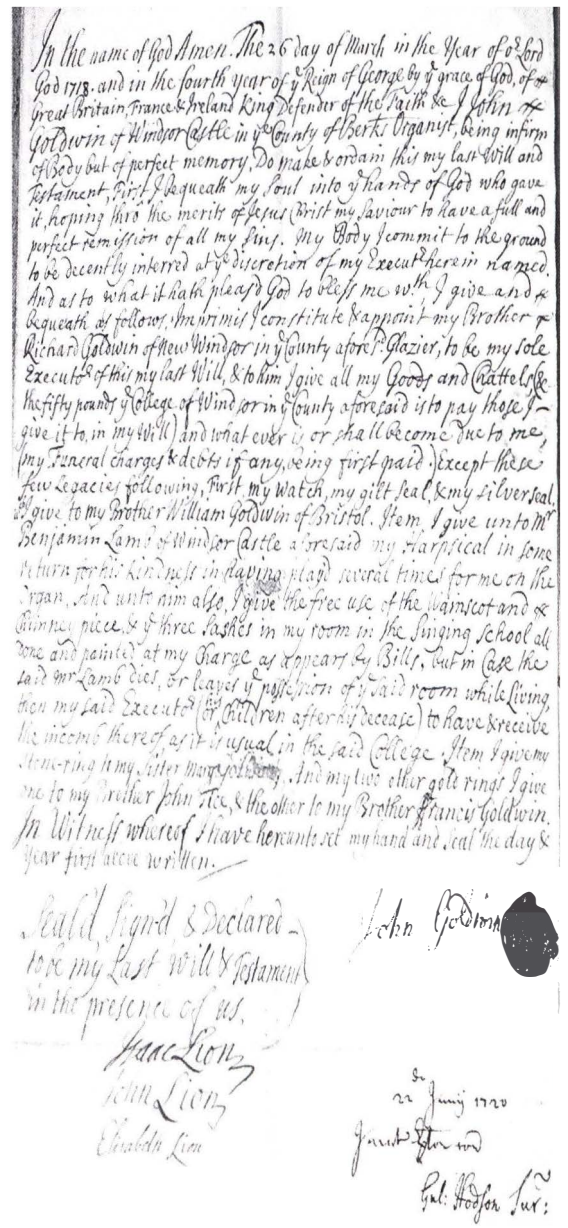 In the name of God Amen. The 26 day of March in the Year of or Lord
God 1718. and in the fourth year of ye Reign of George by ye grace of God, of
Great Britain, France & Ireland King Defender of the Faith &c I John
Goldwin of Windsor Castle in ye County of Berks Organist, being infirm
of Body but of perfect memory, Do make & ordain this my last Will and
Testament, First I bequeath my Soul into ye hands of God who gave
it, hoping thro the merits of Jesus Christ my Saviour to have a full and
perfect remission of all my Sins. My Body I commit to the ground
to be decently interred at ye discretion of my Executr herein named.
And as to what it hath pleas'd God to bless me wth, I give and
bequeath as follows, Imprimis I constitute & appoint my Brother
Richard Goldwin of New Windsor in ye County afores.d Glazier, to be my sole
Executor of this my last Will, & to him I give all my Goods and Chattels (&
the fifty pounds ye College of Windsor in ye County aforesaid is to pay those I
give it to, in my Will) and what ever is or shall become due to me,
(my Funeral charges & debts if any, being first paid.) Except these
few Legacies following, First my Watch, my gilt Seal, & my silver seal,
I give to my Brother William Goldwin of Bristol. Item, I give unto Mr
Benjamin Lamb of Windsor Castle aforesaid my Harpsical in some
return for his kindness in having play'd several times for me on the
Organ, And unto him also, I give the free use of the Wainscot and
Chimney piece, & ye three Sashes in my room in the Singing School all
done and painted at my Charge as appears by Bills, but in Case the
said Mr Lamb dies, or leaves ye possession of ye said room while Living,
then my said Executor (or his Children after his decease) to have & receive
the incomb thereof as it is usual in the said College. Item I give my
Stone-ring to my Sister And my two other gold rings I give
one to my Brother John Tice, & the other to my Brother Francis Goldwin.
In Witness whereof I have hereunto set my hand and Seal the day &
Year first above written.
Seal'd, Sign'd & Declared
to be my Last Will & Testament
in the presence of us.
John Goldwin
Isaac Lion
John Lion
Elizabeth Lion
22 de Junij 1720
Gul: Hodson Sur: